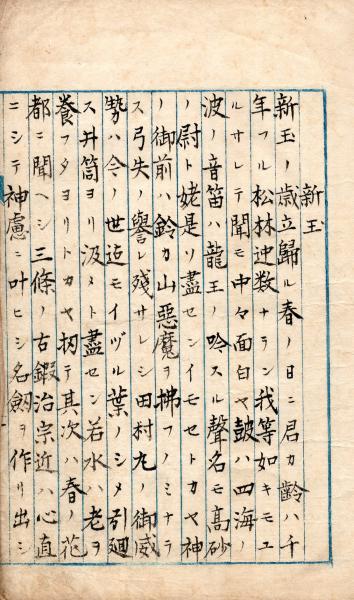 新玉
新玉ノ歳立歸ル春ノ日ニ君カ齡ハ千
年フル松林迚数ナラン我等如キモユ
ルサレテ聞モ中々面白ヤ鼓ハ四海ノ
波ノ音笛ハ龍王ノ吟スル聲名モ高砂
ノ尉ト姥是ソ盡センイモセトカヤ神
ノ御前ハ鈴カ山惡魔ヲ拂フノミナラ
ス弓矢ノ譽レ残サレシ田村丸ノ御威
勢ハ今ノ世迠モイヅル葉ノシメ引廻
ス井筒ヨリ汲メト盡セン若水ハ老ヲ
養フタヨリトカヤ扨テ其次ハ春ノ花
都ニ聞ヘシ三條ノ古鍜治宗近ハ心直
ニシテ神慮ニ叶ヒシ名劔ヲ作リ出シ